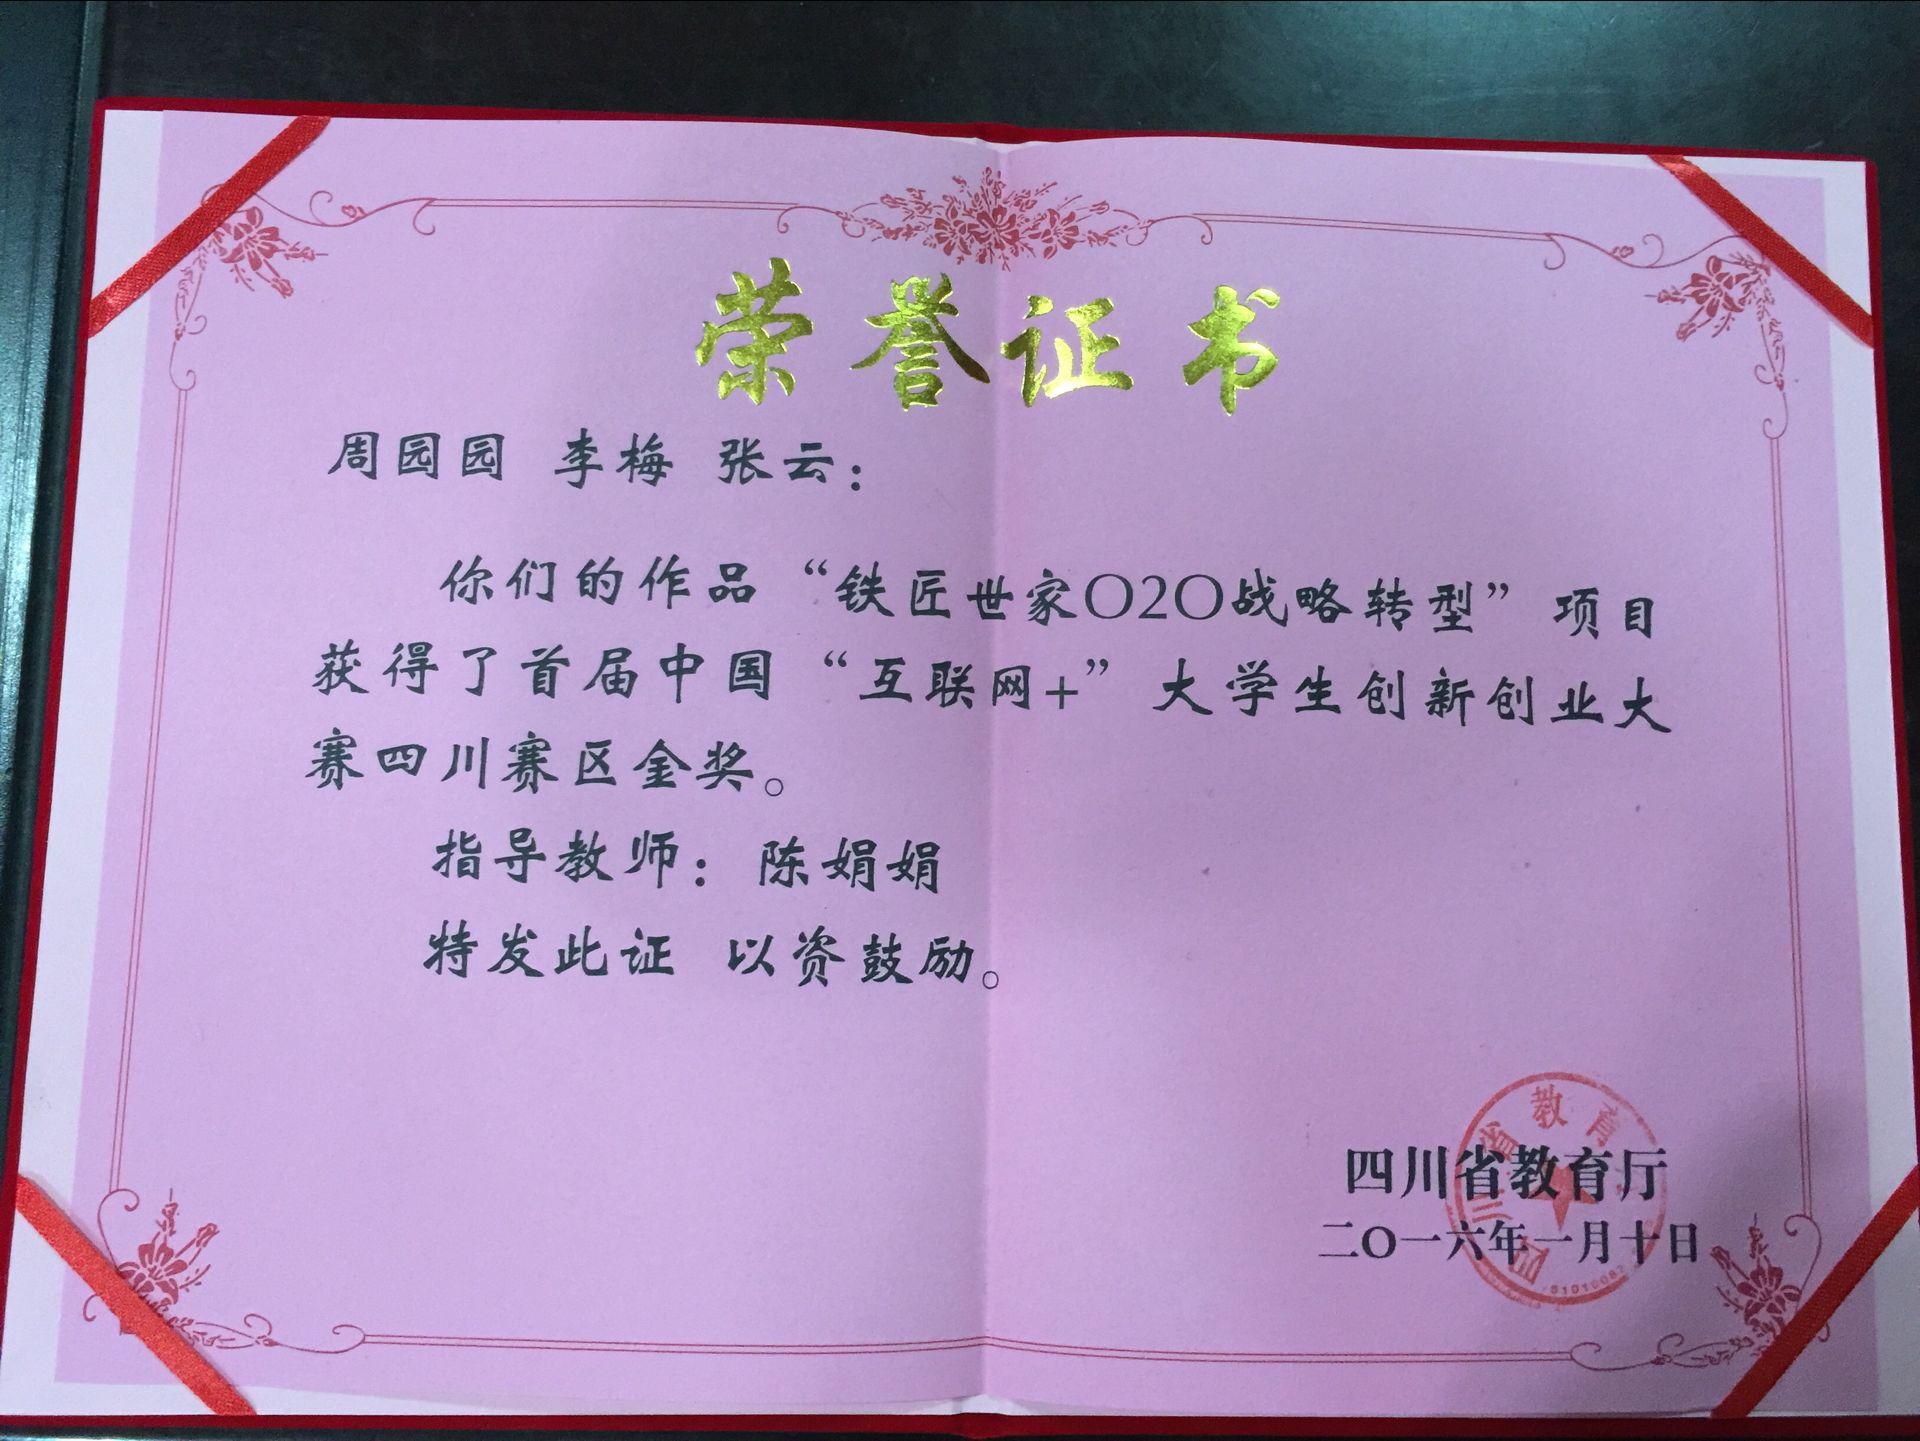 荣誉证书
周园园 李梅 张云：
你们的作品“铁匠世家O2O战略转型”项目
获得了首届中国“互联网+”大学生创新创业大
赛四川赛区金奖。
指导教师：陈娟娟
特发此证 以资鼓励。
四川省教育厅
二〇一六年一月十日
四川省教育